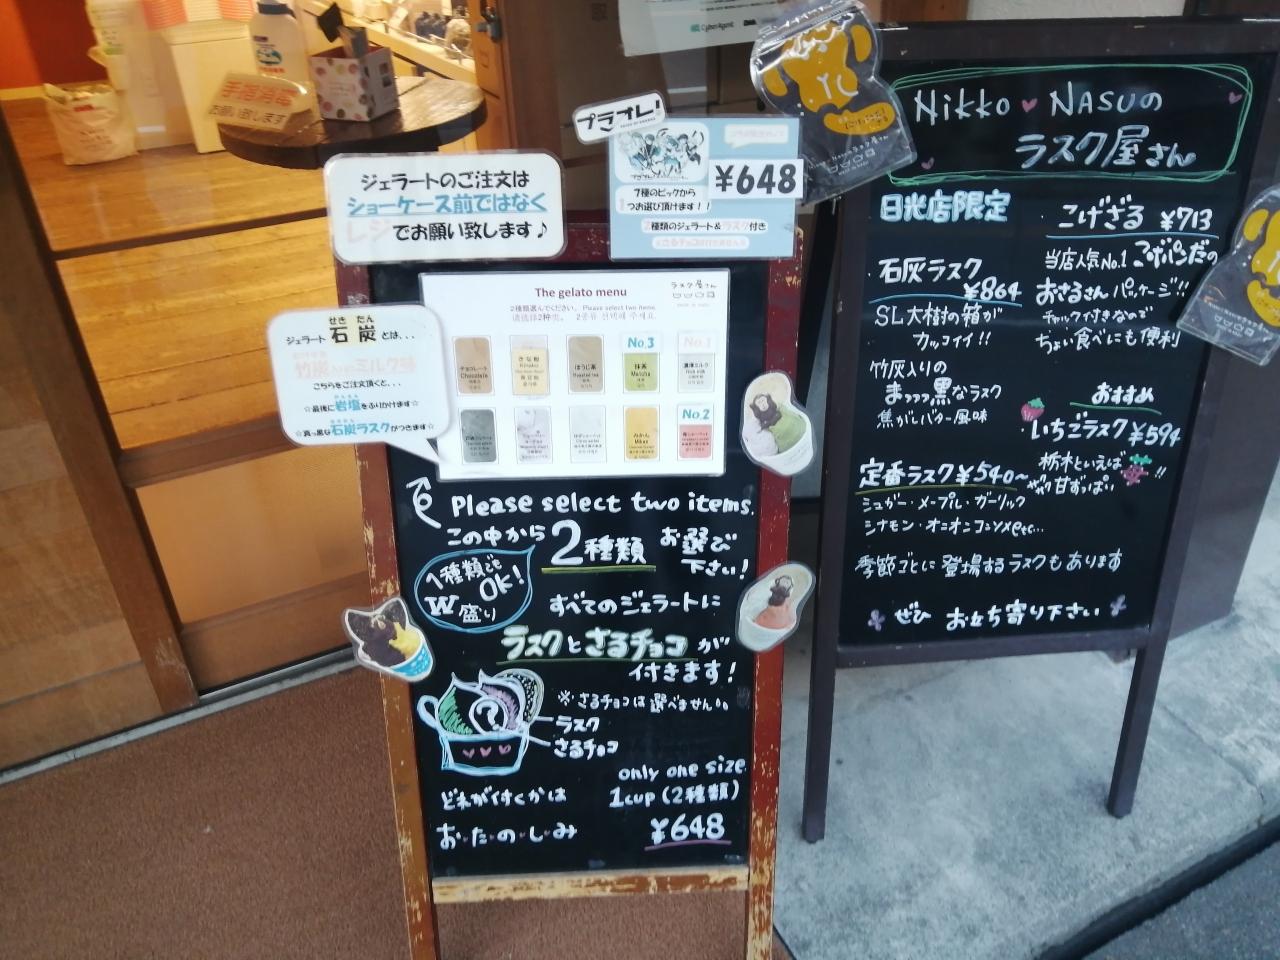 手指消毒
お願い致します
CyberAgent
プラオレ!
¥648
7種のピックから
1つお選び頂けます!!
2種類のジェラート&ラスク付き
ジェラートのご注文は
ショーケース前ではなく
レジでお願い致します♪
The gelato menu
ラスク屋さん
2種類選んでください。 Please select two items.
No.3
No.1
チョコレート
Chocolate
きな粉
Kinako
ほうじ茶
Roasted tea
抹茶
Matcha
濃厚ミルク
No.2
みかん
Mikan
せき たん
ジェラート 石炭 とは、、
竹炭 入りの ミルク味
こちらをご注文頂くと、、、
☆最後に岩塩をふりかけます☆
☆真っ黒な石炭ラスクがつきます☆
Please select two items.
この中から 2種類 お選び
下さい!
1種類でも
OK!
W盛り
すべてのジェラートに
ラスクとさるチョコが
付きます!
※さるチョコは選べません
ラスク
さるチョコ
only one size.
どれが付くかは
1cup (2種類)
お・た・の・し・み
¥648
Nikko ♥ NASUの
ラスク屋さん
日光店限定
石灰ラスク
¥864
SL大樹の箱が
カッコイイ!!
竹灰入りの
まっっっ黒なラスク
焦がしバター風味
定番ラスク¥540~
シュガー・メープル・ガーリック
シナモン・オニオンコンソメetc...
こげざる ¥713
当店人気No.1 こげパンだの
おさるさん パッケージ!!
チャック付きなので
ちょい食べにも便利
おすすめ
いちごラスク¥594
栃木といえば
甘ずっぱい!!
季節ごとに登場するラスクもあります
ぜひ お立ち寄り下さい